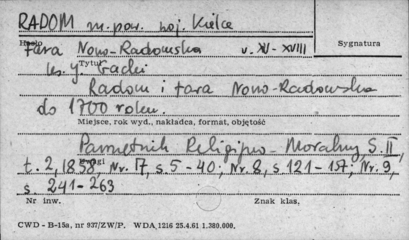 RADOM m. pow. woj. Kielce
Hasło
fara Nowo-Radomska w. XV - XVIII
Sygnatura
ks. J. Gacki
Tytuł
Radom i fara Nowo-Radomska
do 1700 roku.
Miejsce, rok wyd., nakładca, format, objętość
Pamiętnik Religijno-Moralny, S. II,
t. 2, 1858, Nr. 17, s. 5-40; Nr. 8, s. 121-157; Nr. 9,
s. 241-263
Nr inw.
Znak klas.
CWD - B-15a, nr 937/ZW/P. WDA, 1216 25.4.61 1.380.000.